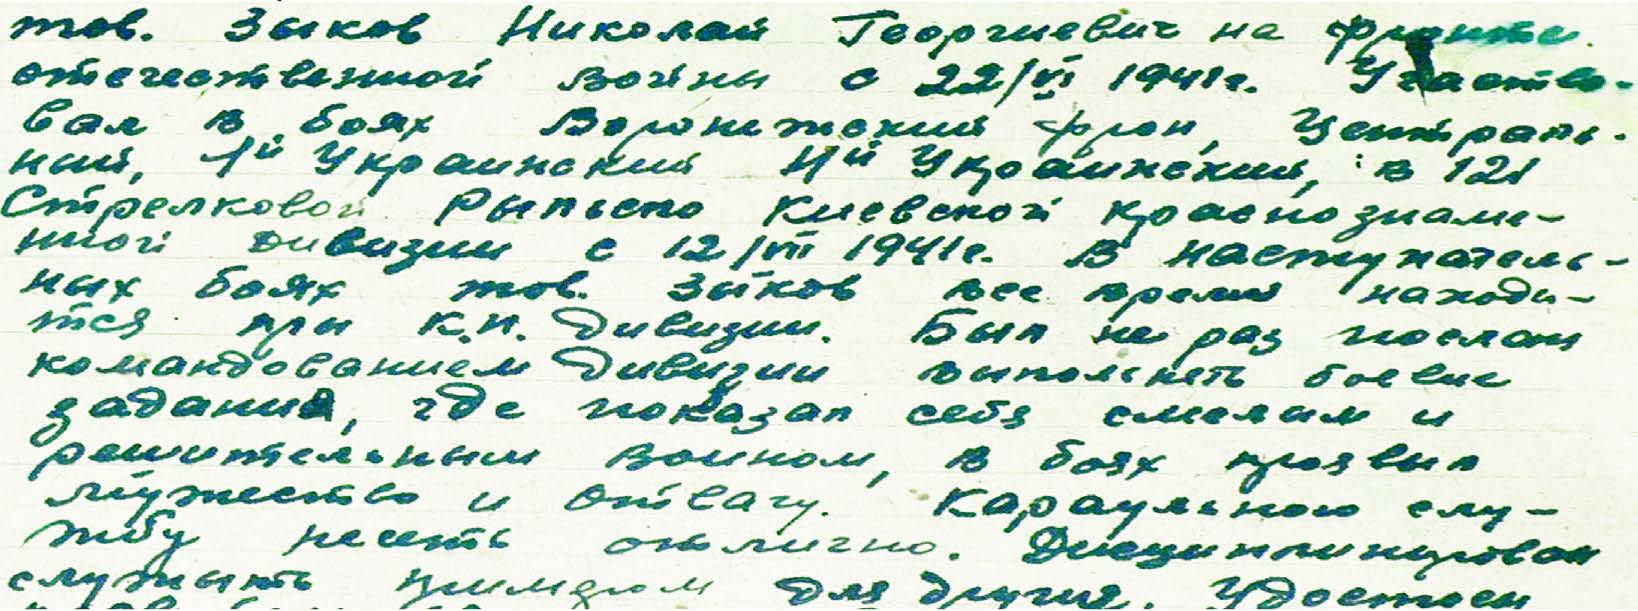 тов. Зыков Николай Георгиевич на фронте
отечественной войны с 22/VI 1941г. Участво-
вал в боях Воронежский фрон, Централь-
ный, 1й Украинский 4й Украинский, в 121
Стрелковой Рыльско Киевской краснознаме-
нной дивизии с 12/VII 1941г. В наступатель-
ных боях тов. Зыков все время находи-
тся при К.П. дивизии. Был не раз послан
командованием дивизии выполнять боевые
задания, где показал себя смелым и
решительным воином, в боях проявил
мужество и отвагу. Караульною слу-
жбу несеть отлично. Дисциплинирован
служить примером для других. Удостоен